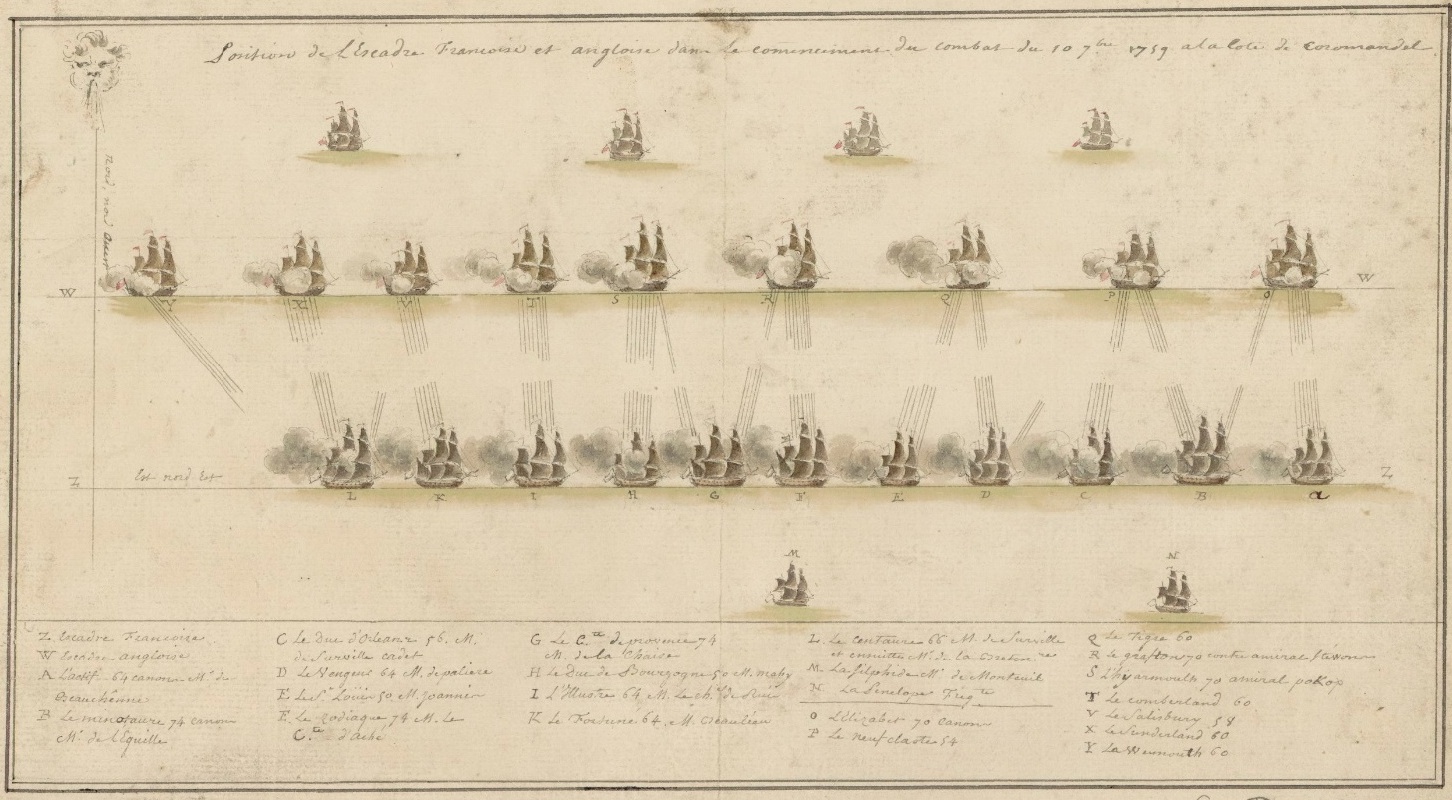 Position de L'Escadre Francoise et angloise dans le comencement du combat du 10 7bre 1759 a la Cote de Coromandel
nord, nord Ouest
W W
Y X V T S R Q P O
Est nord Est
Z Z
L K I H G F E D C B a
M N
Z Escadre Francoise
W Escadre angloise
A L'actif 64 canons Mr. de
Beauchenne
B Le minotaure 74 canons
Mr. de L'Eguille
C Le Duc d'Orleans 56. M.
de Surville cadet
D Le Vengeur 64 M. de paliere
E Le St. Loüis 50 M. Joannis
F. Le Zodiaque 74 M. Le
C.te d'aché
G Le C.te de provence 74
M. de la Chaise
H Le Duc de Bourgogne 50 M.
I L'Illustre 64 M. Le ch.r de Ruis
K Le Fortuné 64 M.
L. Le Centaure 66 M. de Surville
et ensuitte Mr. de la
M La Silphide Mr. de Monteuil
N La Penelope Frégte
O L'Elizabet 70 canons
P Le neuf claste 54
Q Le Tigre 60
R Le grafton 70 contre amiral Stevens
S L'hyarmouth 70 amiral pokop
T Le comberland 60
V Le Salisbury 58
X Le Sunderland 60
Y Le Weymouth 60